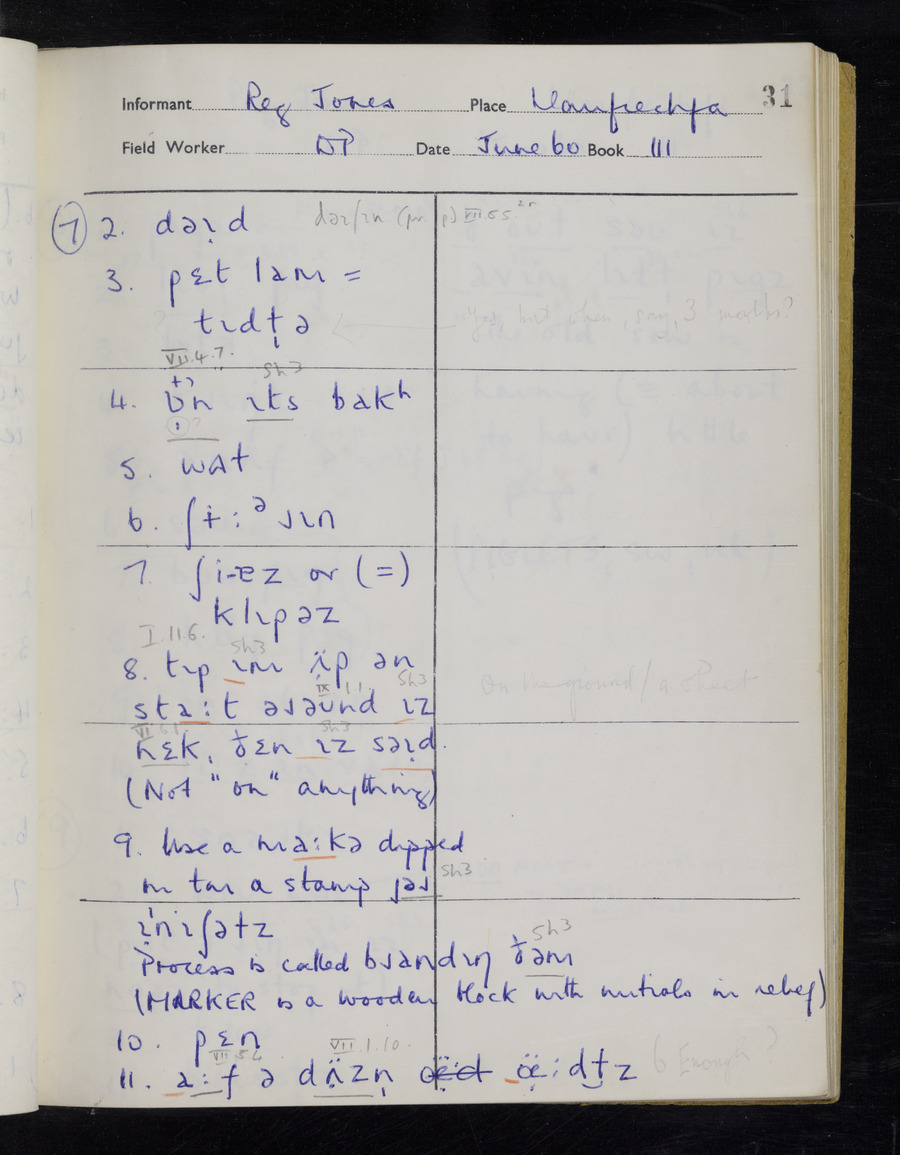 31
Informant Reg Jones Place Llanfrechfa
Field Worker DP Date June 60 Book III
⑦ 2. dəɪ̣d dəɪ/ɪn (pr. p) VII.
3. pɛt lam =
tɪdɫ̩ə
Yes, but when, say, 3 months?
VII.4.7. Sh3
4. ɪts bakʰ
5. wʌt
6. ʃɨ:ᵊɹɪn
7. ʃi-ɐz or (=)
klɪpəz
I.11.6. Sh3
8. tɪp ɪm ʌ̈p ən
On the ground / a sheet
IX Sh3
sta:t əɹəʊnd ɪz
VI Sh3
nɛk, ðɛn ɪz səɪ̣d.
(Not "on" anything)
9. Use a ma:kə dipped
in tar a stamp jəɹ Sh3
ɪnɪʃətz
Process is called bɹandɪŋ ðəm Sh3
(MARKER is a wooden block with initials in relief)
10. pɛn
VII VII.1.10.
11. a:f ə dʌ̈zn̩ œ̈:dɫ̩z 6 Enough?